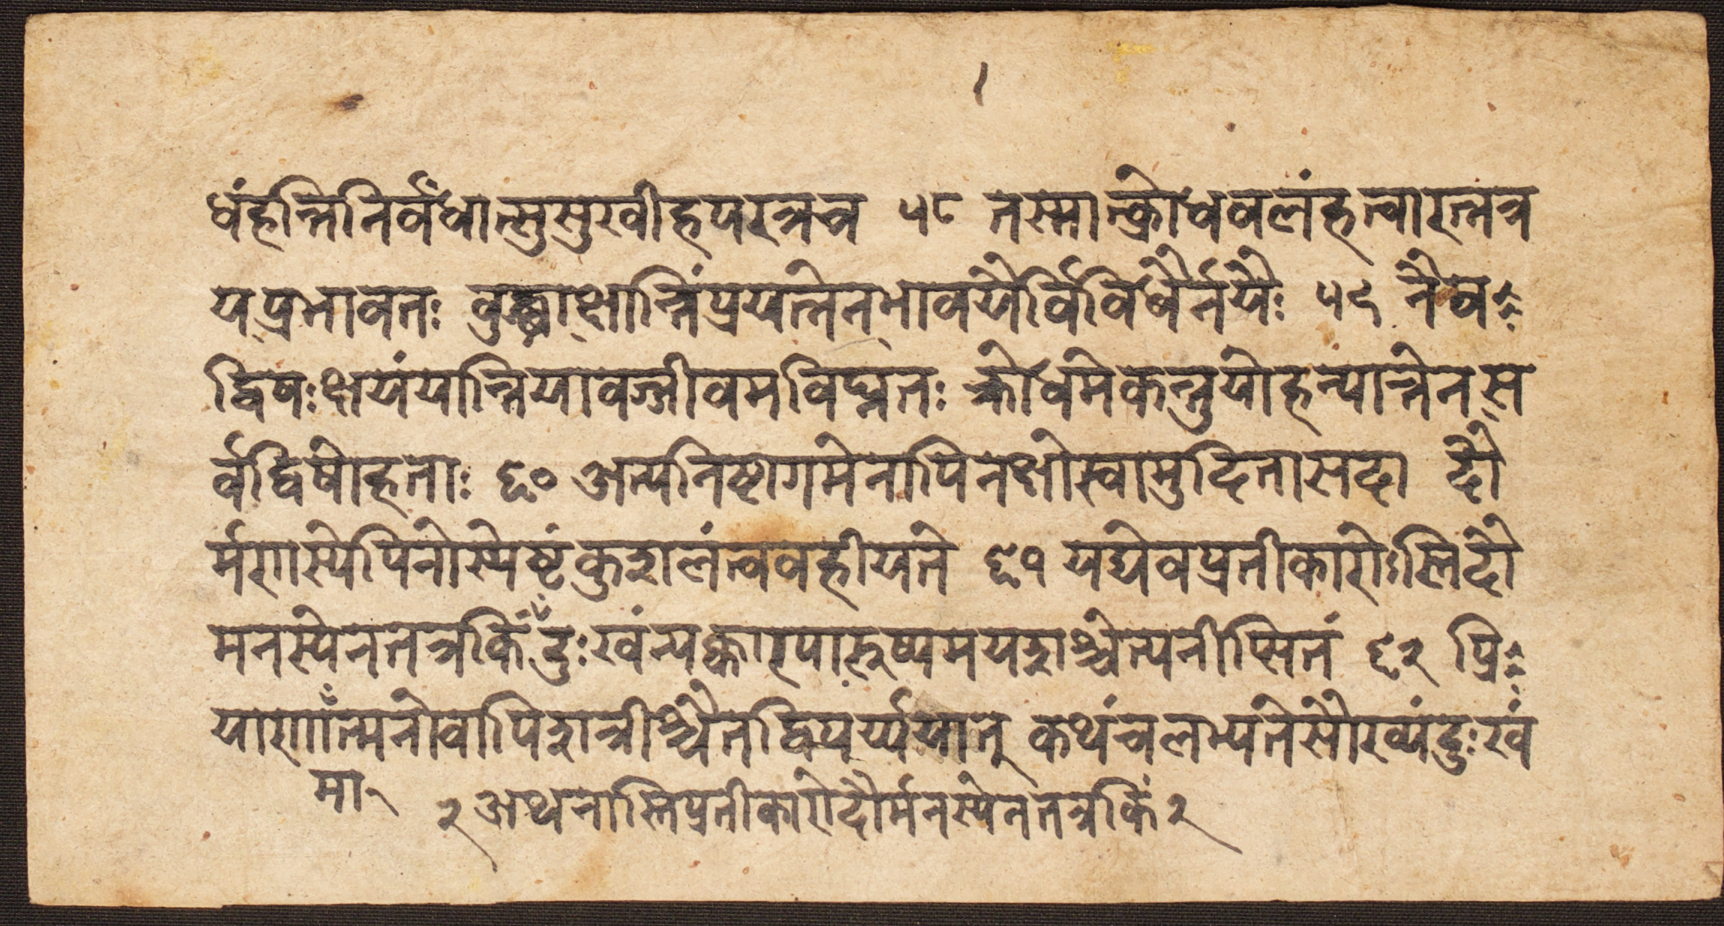 धंहन्तिनिर्वंधात्सुसुखीहपरत्रच ५८ तस्मात्क्रोधवलंहत्वारत्नत्र
यप्रभावतः वुद्ध्वाक्षान्तिंप्रयत्नेनभावयैर्विविधैर्नयैः ५९ नैव
द्विषःक्षयंयान्तियावज्जीवमविघ्नतः क्रोधमेकन्तुयोहन्यात्तेनस
र्वद्विषोहताः ६० अत्यनिष्टागमेनापिनक्षोस्वामुदितासदा दौ
र्मणास्येपिनोस्येष्टंकुशलंत्ववहीयते ६१ यद्येवप्रतीकारोऽस्तिदौ
मनस्येनतत्रकिं दुःखंन्यक्कारपारुष्यमयशश्चेत्यनीप्सितं ६२ प्रि
याणान्मनोवापिशत्रोश्चैतद्विपर्य्ययात् कथंचलभ्यतेसौख्यंदुःखं
मा १
२ अथनास्तिप्रतीकारोदौर्मनस्येनतत्रकिं २